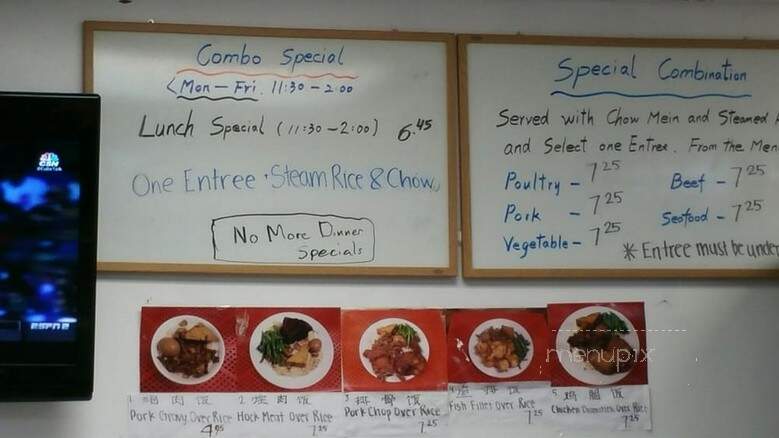 Combo Special
<Mon - Fri. 11:30 - 2:00
Lunch Special (11:30 - 2:00) 6.45
One Entree + Steam Rice & Chow
No More Dinner
Specials
Special Combination
Served with Chow Mein and Steamed
and Select one Entree. From the Men
Poultry - 7 25
Beef - 7 25
Pork - 7 25
Seafood - 7 25
Vegetable - 7 25
* Entree must be under
CSN
ESPN 2
menupix
1 肉 饭
Pork Gravy Over Rice
4 95
2 肉 饭
Hock Meat Over Rice
7 25
3 排 骨 饭
Pork Chop Over Rice
7 25
4 饭
Fish Fillet Over Rice
7 25
5 鸡 腿 饭
Chicken Over Rice
7 25